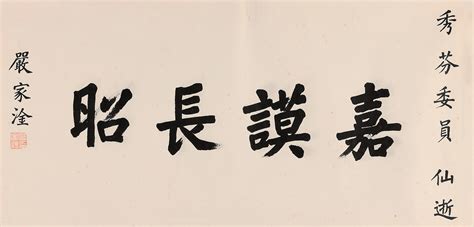 秀芬委員 仙逝
嘉謨長昭
嚴家淦